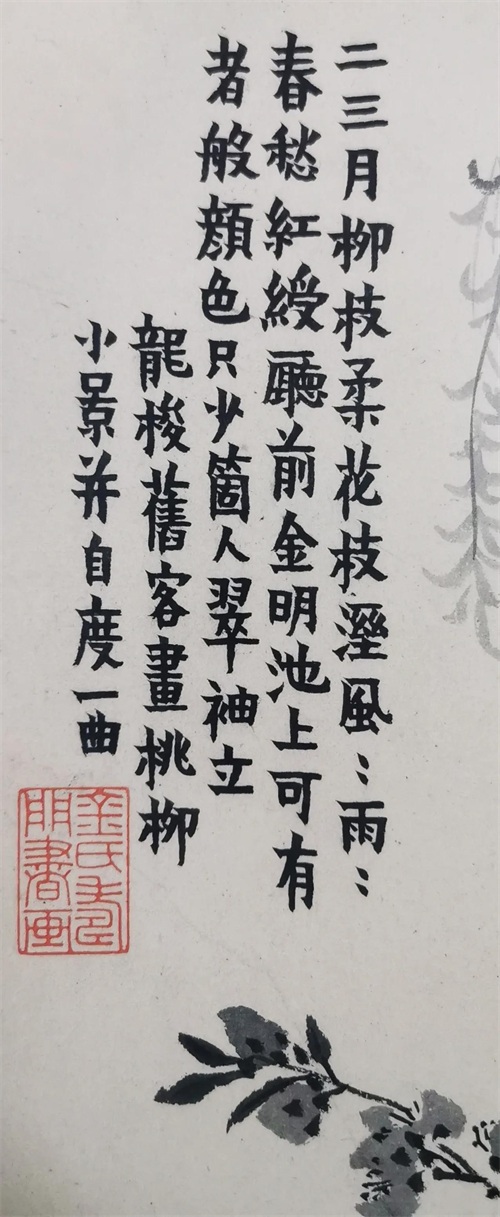 二三月柳枝柔花枝溼風：雨：
春愁紅綬廳前金明池上可有
者般顔色只少箇人翠袖立
龍梭舊客畫桃柳
小景并自度一曲
金氏壽門書画